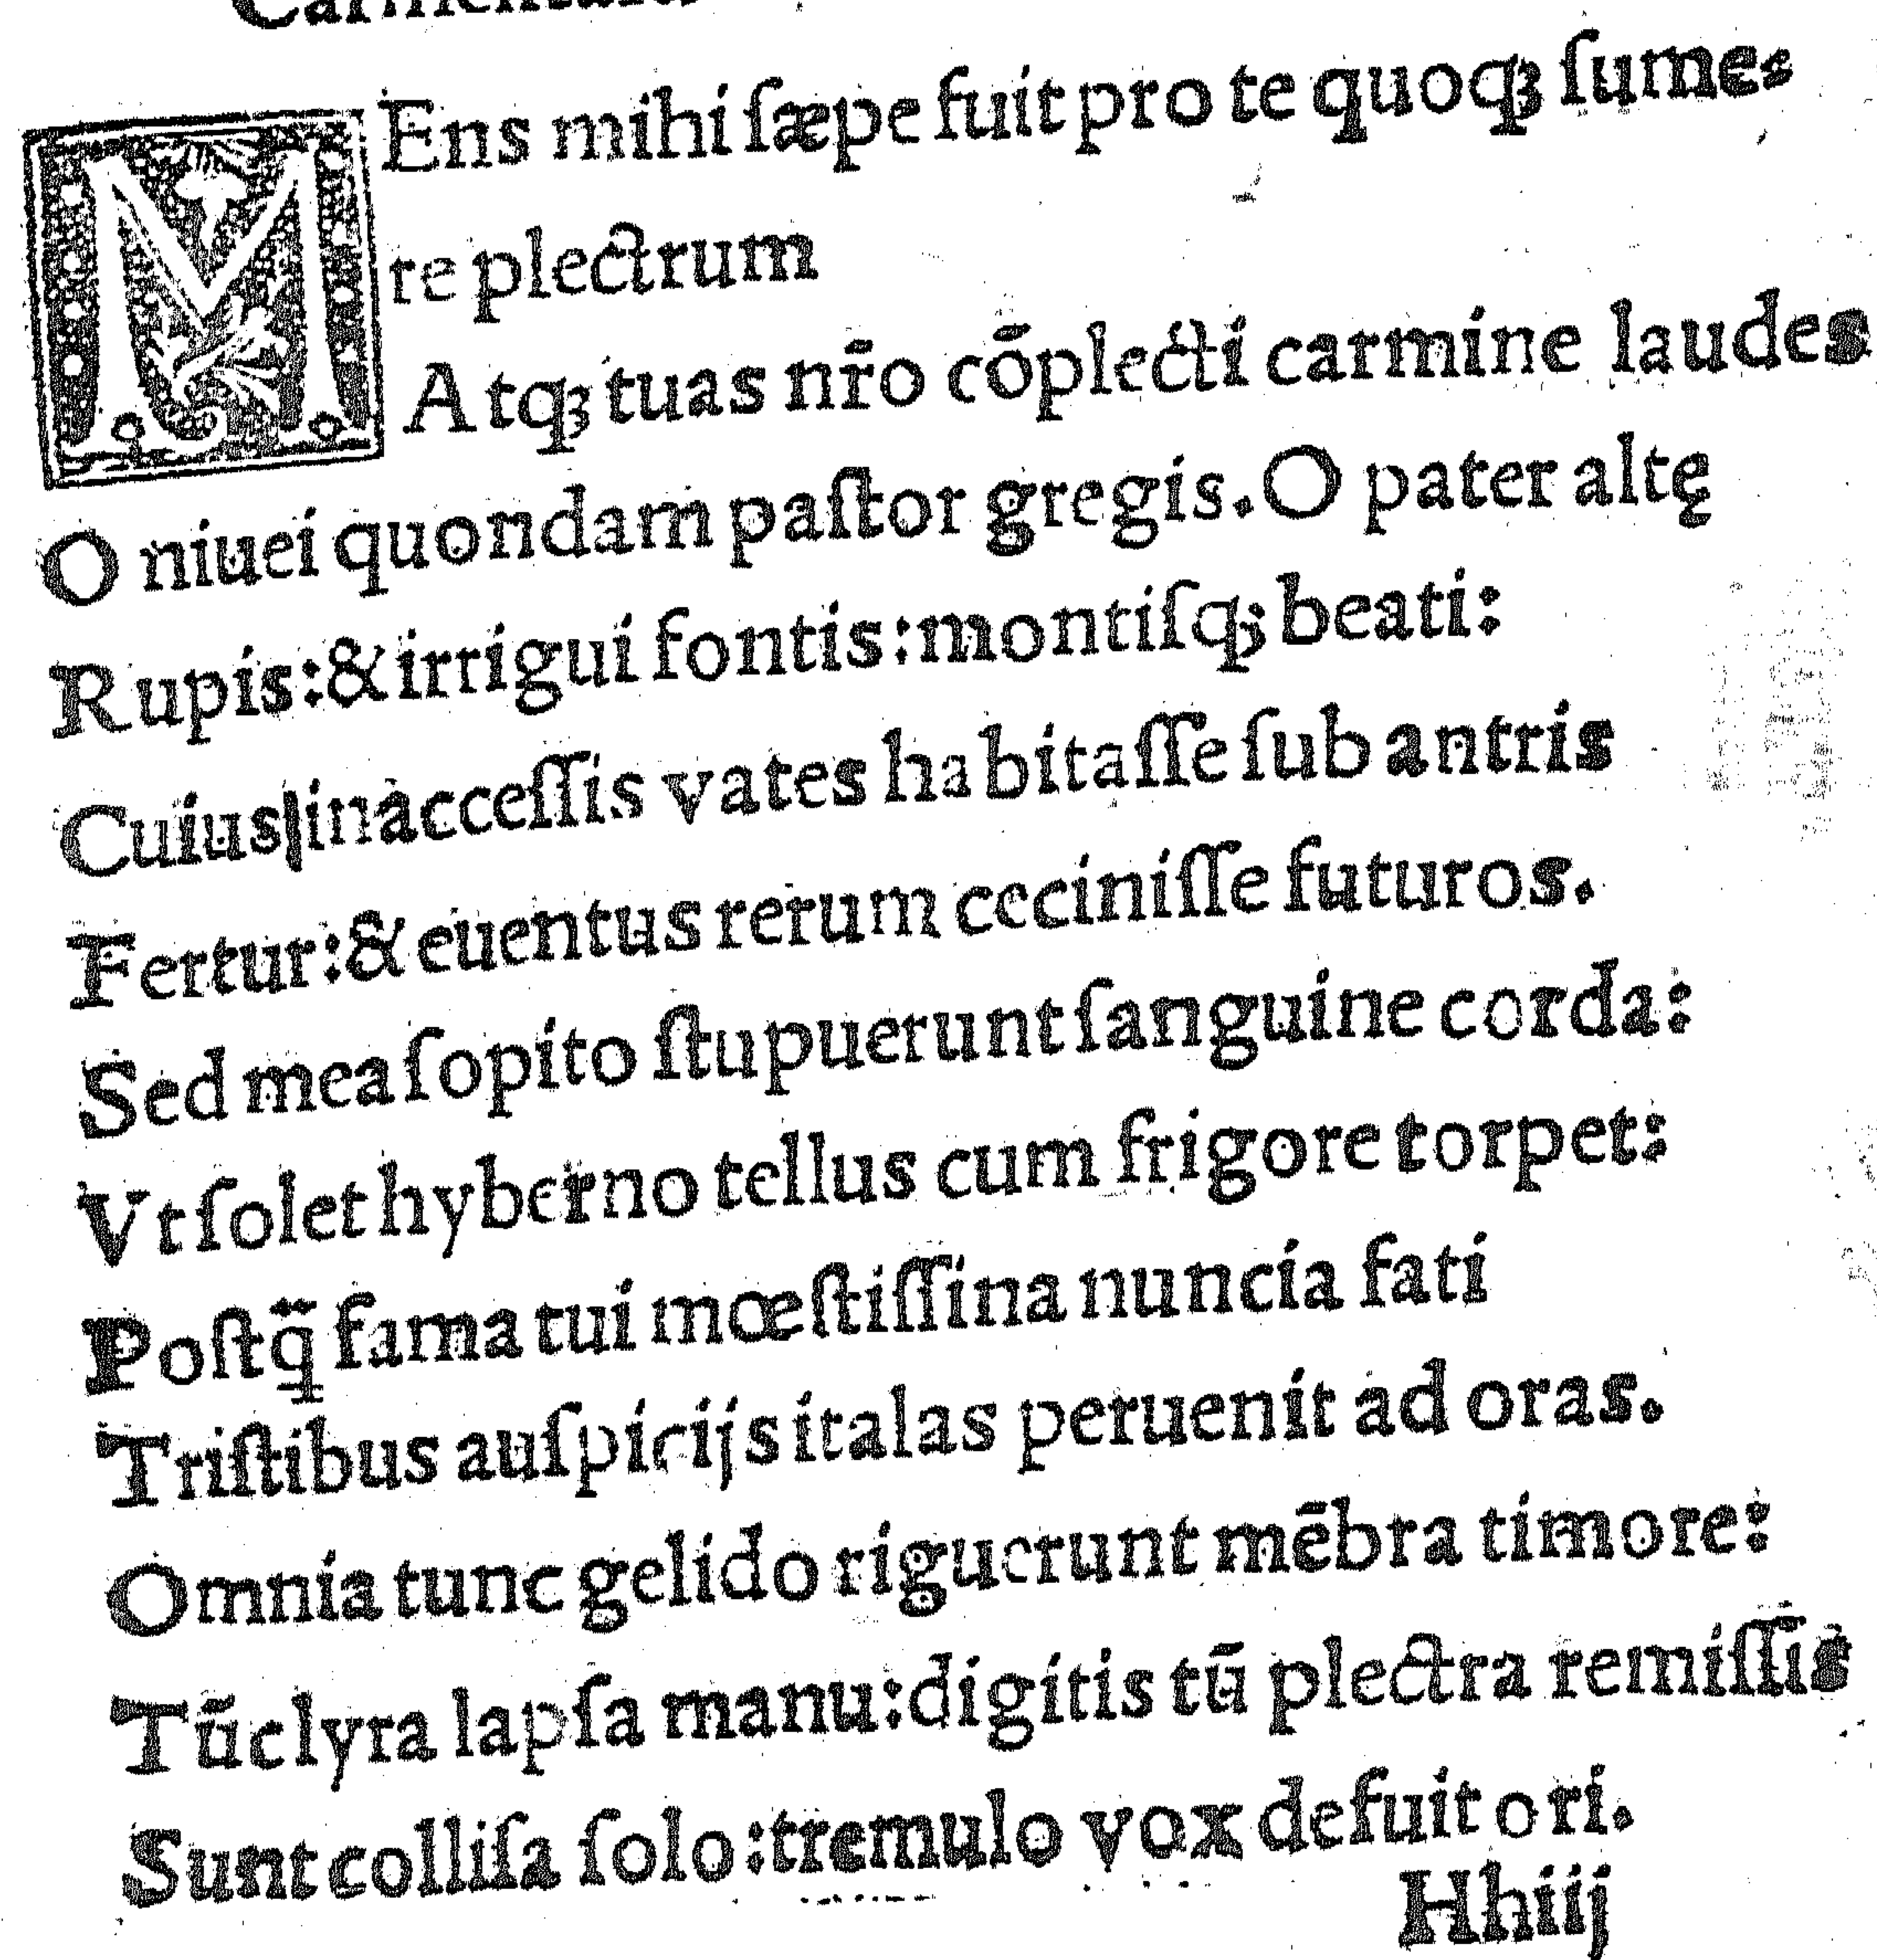 MEns mihi ſæpe fuit pro te quoqꝫ ſume-
re plectrum
Atqꝫ tuas nr̄o cōplecti carmine laudes
O niuei quondam paſtor gregis. O pater altę
Rupis: & irrigui fontis: montiſqꝫ beati:
Cuius inacceſſis vates habitaſſe ſub antris
Fertur: & euentus rerum ceciniſſe futuros.
Sed mea ſopito ſtupuerunt ſanguine corda:
Vt ſolet hyberno tellus cum frigore torpet:
Poſtq̃ fama tui mœſtiſſina nuncia fati
Triſtibus auſpicijs italas peruenit ad oras.
Omnia tunc gelido riguerunt mēbra timore:
Tūc lyra lapſa manu: digitis tū plectra remiſſis
Sunt colliſa ſolo: tremulo vox defuit ori.
Hhiij